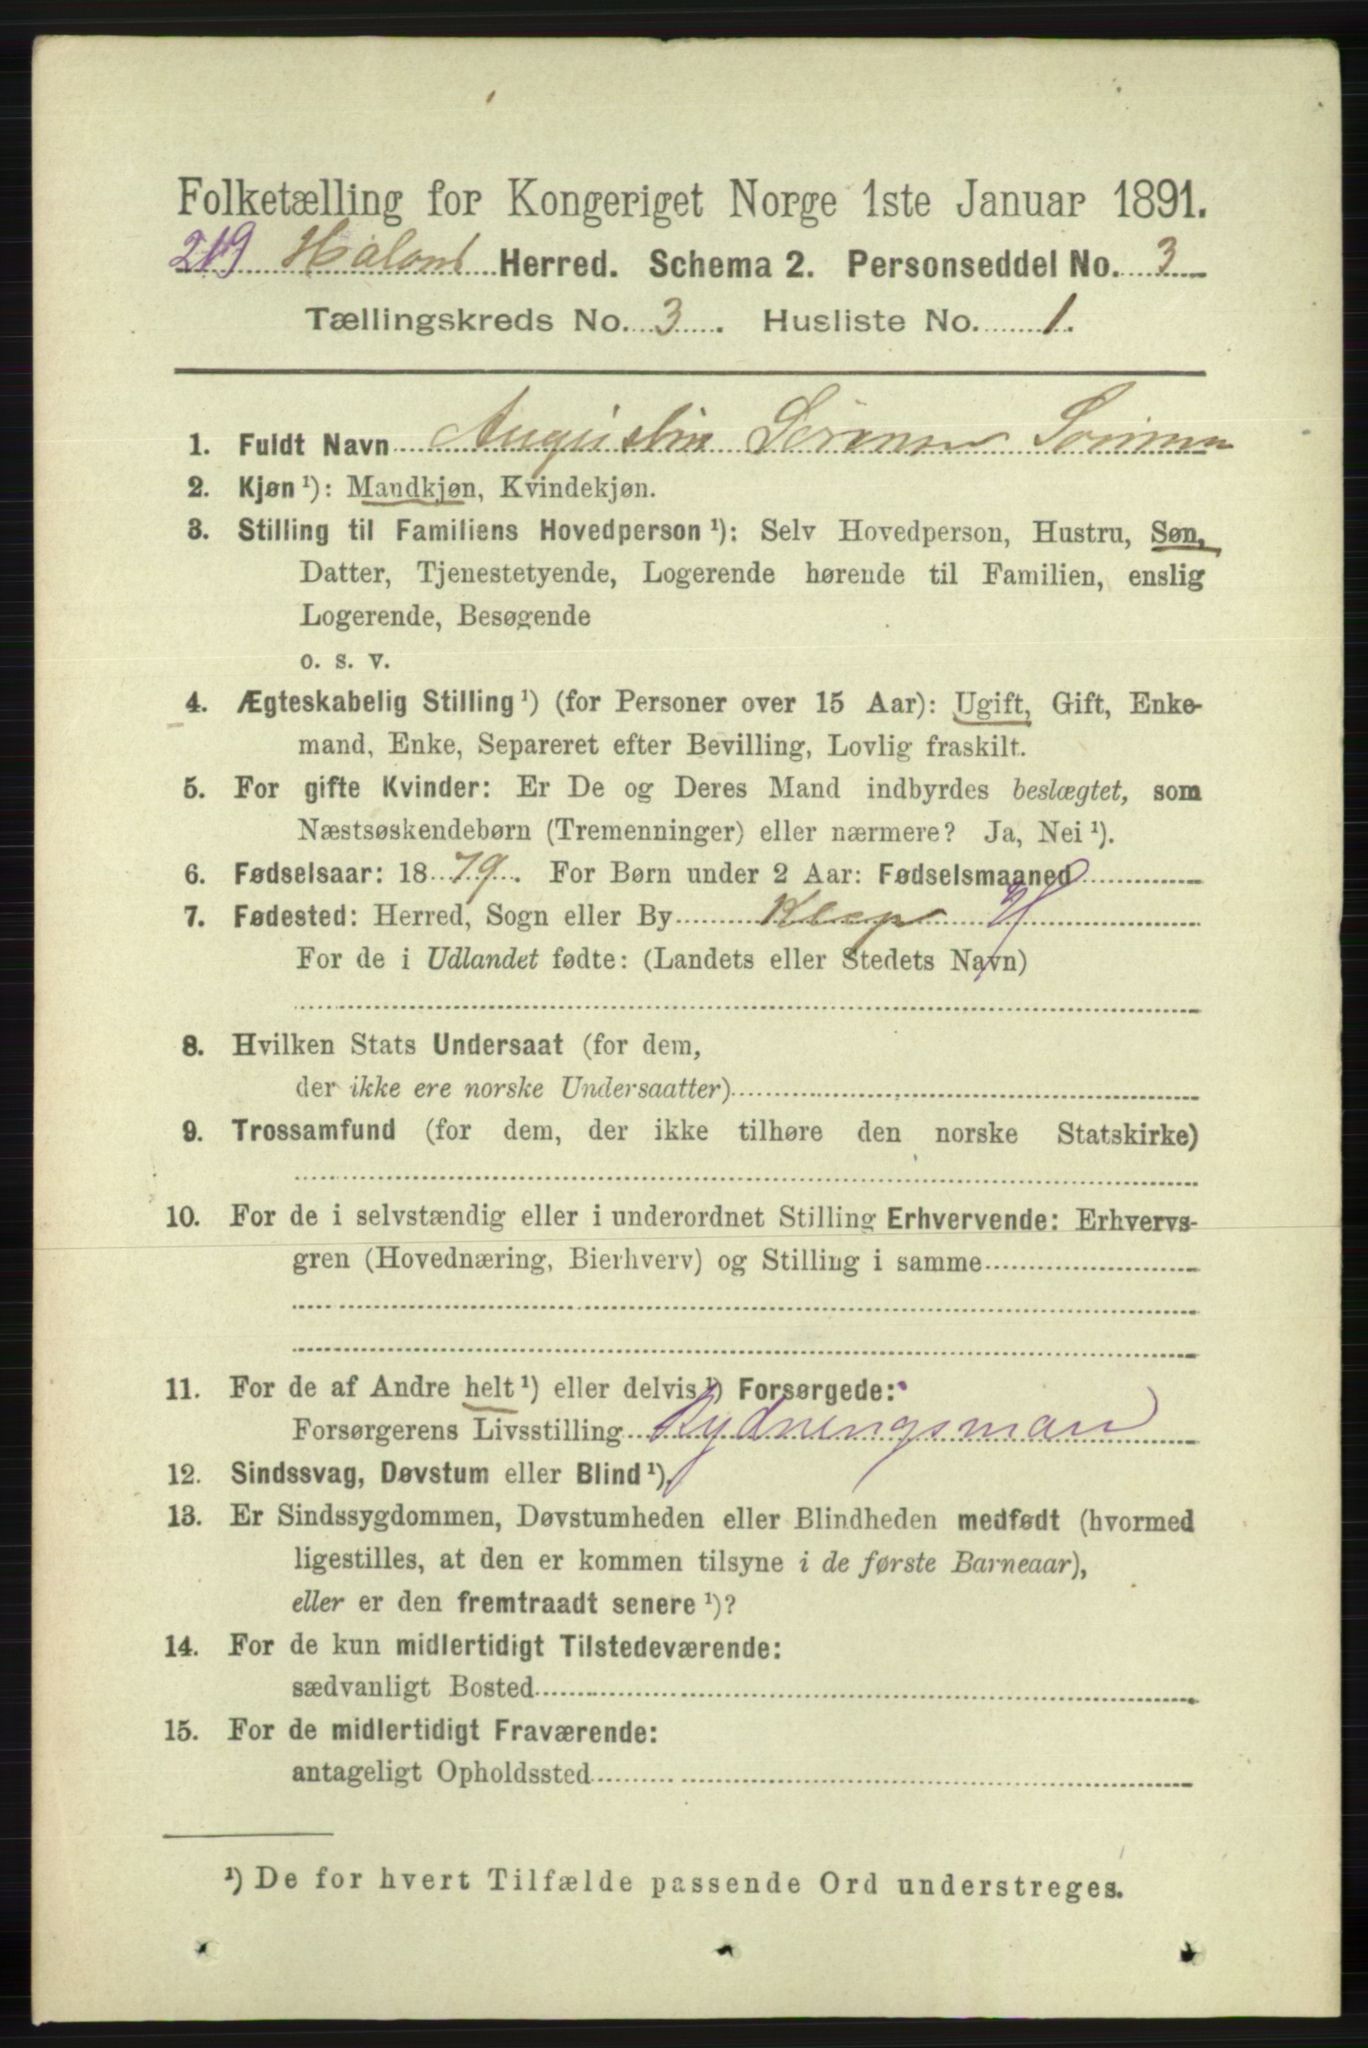 Folketælling for Kongeriget Norge 1ste Januar 1891.
Haland Herred. Schema 2. Personseddel No. 3
Tællingskreds No. 3. Husliste No. 1.
1. Fuldt Navn Augustin
2. Kjøn ¹): Mandkjøn, Kvindekjøn.
3. Stilling til Familiens Hovedperson ¹): Selv Hovedperson, Hustru, Søn,
Datter, Tjenestetyende, Logerende hørende til Familien, enslig
Logerende, Besøgende
o. s. v.
4. Ægteskabelig Stilling ¹) (for Personer over 15 Aar): Ugift, Gift, Enke-
mand, Enke, Separeret efter Bevilling, Lovlig fraskilt.
5. For gifte Kvinder: Er De og Deres Mand indbyrdes beslægtet, som
Næstsøskendebørn (Tremenninger) eller nærmere? Ja, Nei ¹).
6. Fødselsaar: 1879. For Børn under 2 Aar: Fødselsmaaned
7. Fødested: Herred, Sogn eller By Klep
For de i Udlandet fødte: (Landets eller Stedets Navn)
8. Hvilken Stats Undersaat (for dem,
der ikke ere norske Undersaatter)
9. Trossamfund (for dem, der ikke tilhøre den norske Statskirke)
10. For de i selvstændig eller i underordnet Stilling Erhvervende: Erhvervs-
gren (Hovednæring, Bierhverv) og Stilling i samme
11. For de af Andre helt ¹) eller delvis ¹) Forsørgede:
Forsørgerens Livsstilling Rydningsman
12. Sindssvag, Døvstum eller Blind ¹).
13. Er Sindssygdommen, Døvstumheden eller Blindheden medfødt (hvormed
ligestilles, at den er kommen tilsyne i de første Barneaar),
eller er den fremtraadt senere ¹)?
14. For de kun midlertidigt Tilstedeværende:
sædvanligt Bosted
15. For de midlertidigt Fraværende:
antageligt Opholdssted
¹) De for hvert Tilfælde passende Ord understreges.